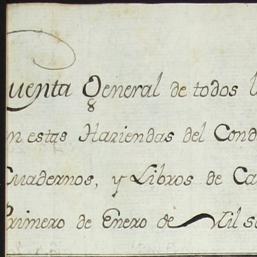 Cuenta General de todos l
en estas Haziendas del Cond
Cuadernos, y Libros de Ca
Primero de Enero de Mil s